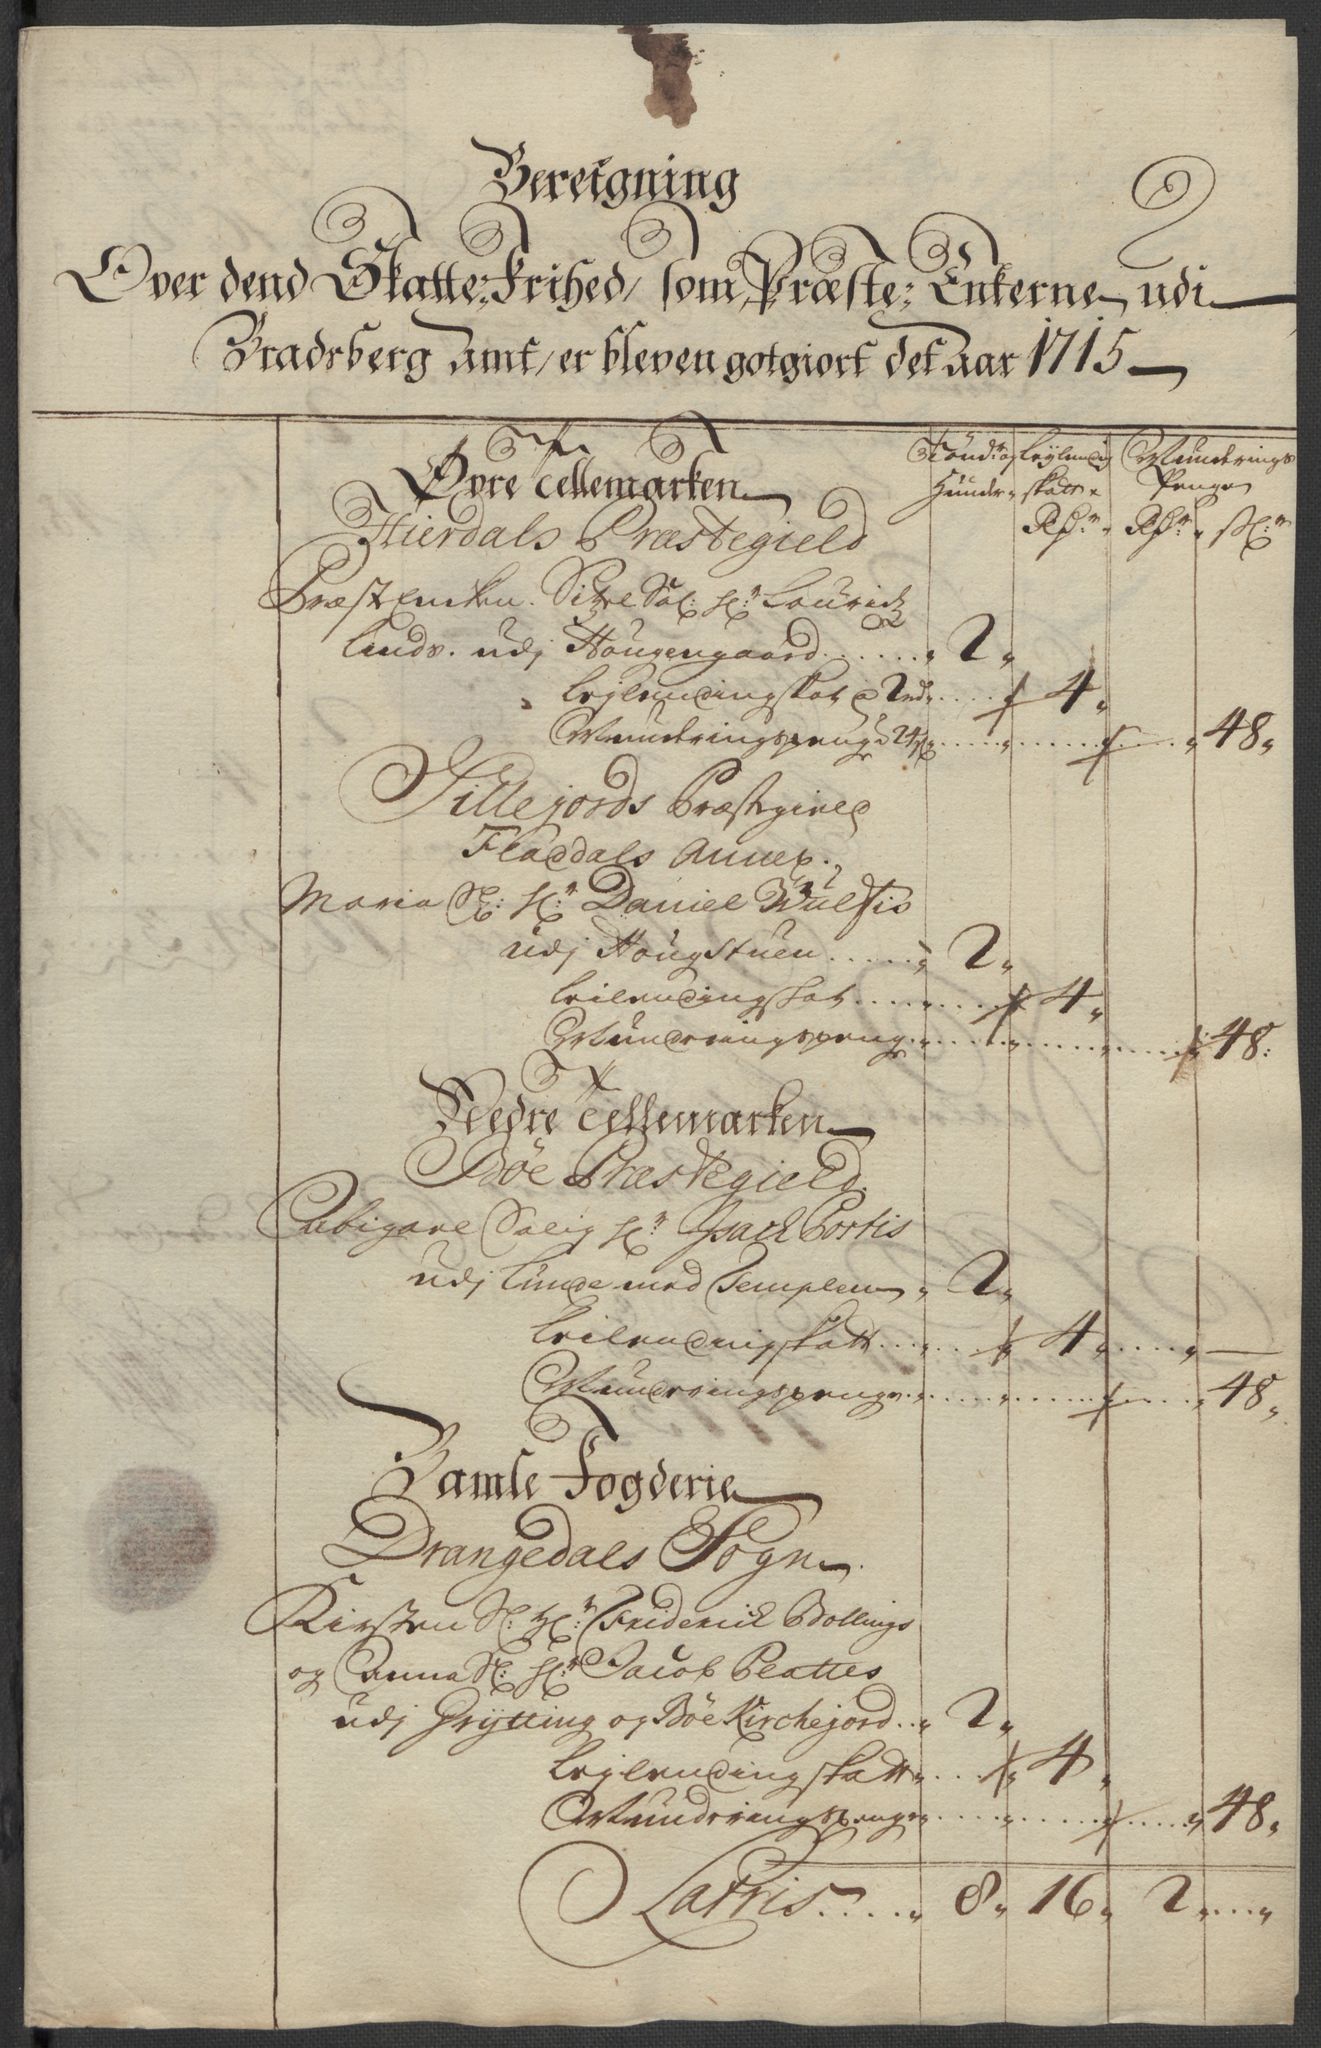 Beregning
2
Over dend Skatte-frihed, som Præste-Enkerne udi
Bradsberg amt, er bleven gotgiort det aar 1715
Øvre Tellemarken
Tønder og Leÿlending Mundrings
Hunder skatt Penge
Rdr Rdr sk:
Hierdals Præstegield
Præst Encken. Sitzel Sal: Hr: Lauridz
Linds. udj Hougengaard ...... 2
Leÿlendingskat @ 2rd ..... 4
Mundringspenge @ 24s ........ 48
Sillejords Præstegield
Fladdals Annex.
Maria Sl: Hr: Daniel Wulfis
udj Hougstuen ..... 2
Leilendingskat ...... 4
Mundringspenge ......... 48
Nedre Tellemarken
Bøe Præstegield
Abigael Salig Hr: Isack Portis
udj Linde med Templen 2
Leilendingskatt ..... 4 ....
Mundringspenge ......... 48
Bamle Fogderie
Drangedals Sogn
Kirsten Sl: Hr: Friderick Bollings
og Anna Sl: Hr: Jacob Plattes
udj Grÿtting og Bøe Kirchejord .. 2
Leÿlendingskatt .... 4
Mundringspenge ......... 48
Latris ..... 8 16 2 ....